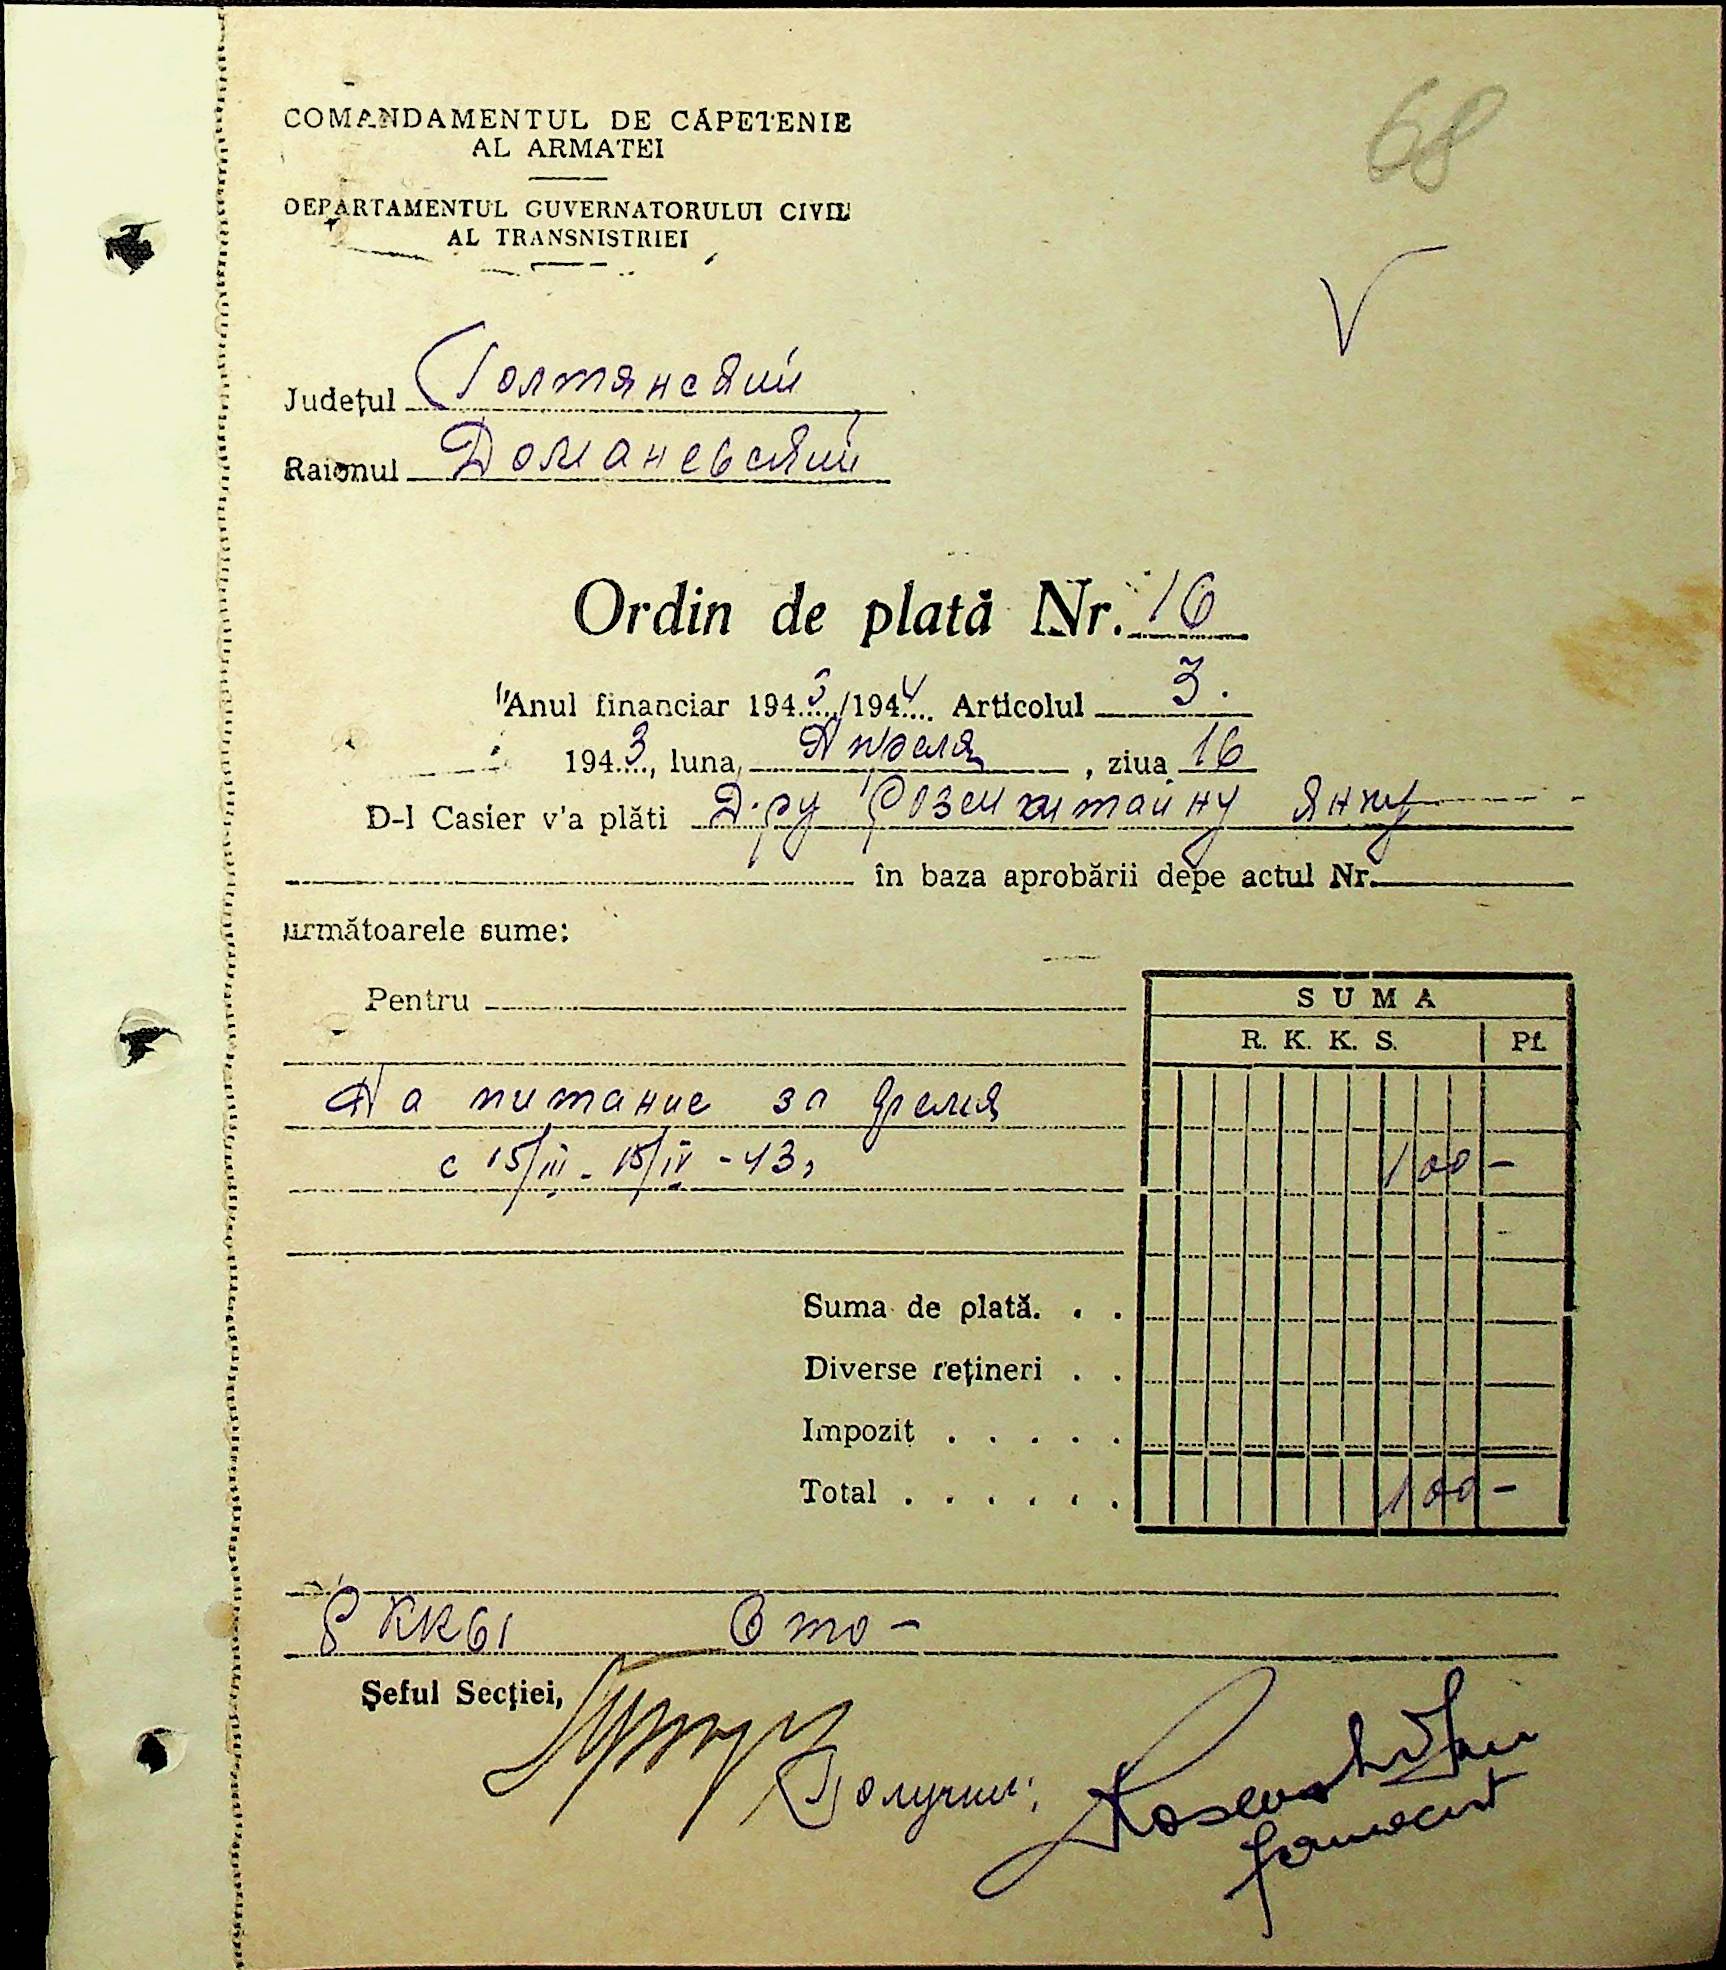 68
COMANDAMENTUL DE CĂPETENIE
AL ARMATEI
DEPARTAMENTUL GUVERNATORULUI CIVIL
AL TRANSNISTRIEI
Județul Голтянский
Raionul Доманевский
Ordin de plată Nr. 16
Anul financiar 1943/1944 Articolul 3.
1943, luna Апреля, ziua 16
D-l Casier v'a plăti Д-ру Розенштайну Янку
în baza aprobării depe actul Nr.
următoarele sume:
Pentru
SUMA
R. K. K. S. Pf.
На питание за время
с 15/III - 15/IV - 43, 100 -
Suma de plată. . .
Diverse rețineri . .
Impozit . . . . .
Total . . . . . . 100 -
Сто -
Șeful Secției,
Получил: